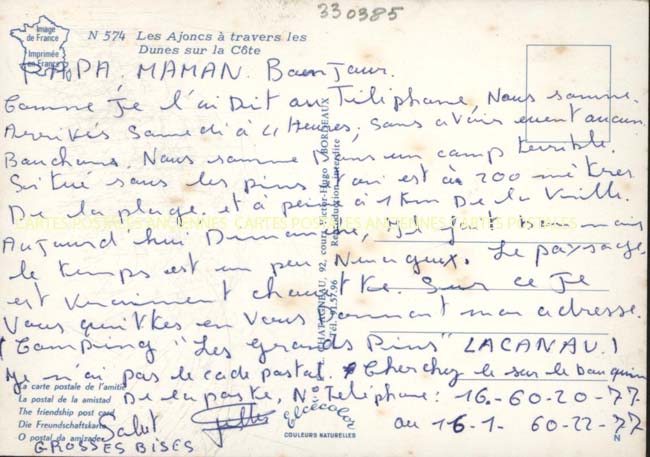 330385
Image
de France
Imprimée
en France
N 574 Les Ajoncs à travers les
Dunes sur la Côte
PAPA, MAMAN. Bonjour.
Comme Je l'ai Dit au Téléphone, Nous somme
Arrivés Samedi à 4 Heures, sans avoir aucun
Bouchons. Nous somme Dans un camp terrible.
Situé sous les pins, on est à 200 mètres
De la plage et à peine à 1 km De la Ville.
CARTES POSTALES ANCIENNES CARTES POSTALES ANCIENNES CARTES POSTALES
Aujourd'hui Dimanche, mais
le temps est un peu Nuageux. Le paysage
est vraiment chouette. Sur ce Je
Vous quittes en Vous Donnant mon adresse.
(Camping "Les Grands Pins" LACANAU.)
Je n'ai pas le code postal. Cherchez le sur le bouquin
De la poste, N° Téléphone: 16.-60-20-77
ou 16-1- 60-22-77
Salut
GROSSES BISES
CHATAGNEAU, 92, cours Victor-Hugo BORDEAUX
Tél. 91.57.96 Reproduction interdite
La carte postale de l'amitié
La postal de la amistad
The friendship post card
Die Freundschaftskarte
O postal da amizade
elcécolor
COULEURS NATURELLES
N